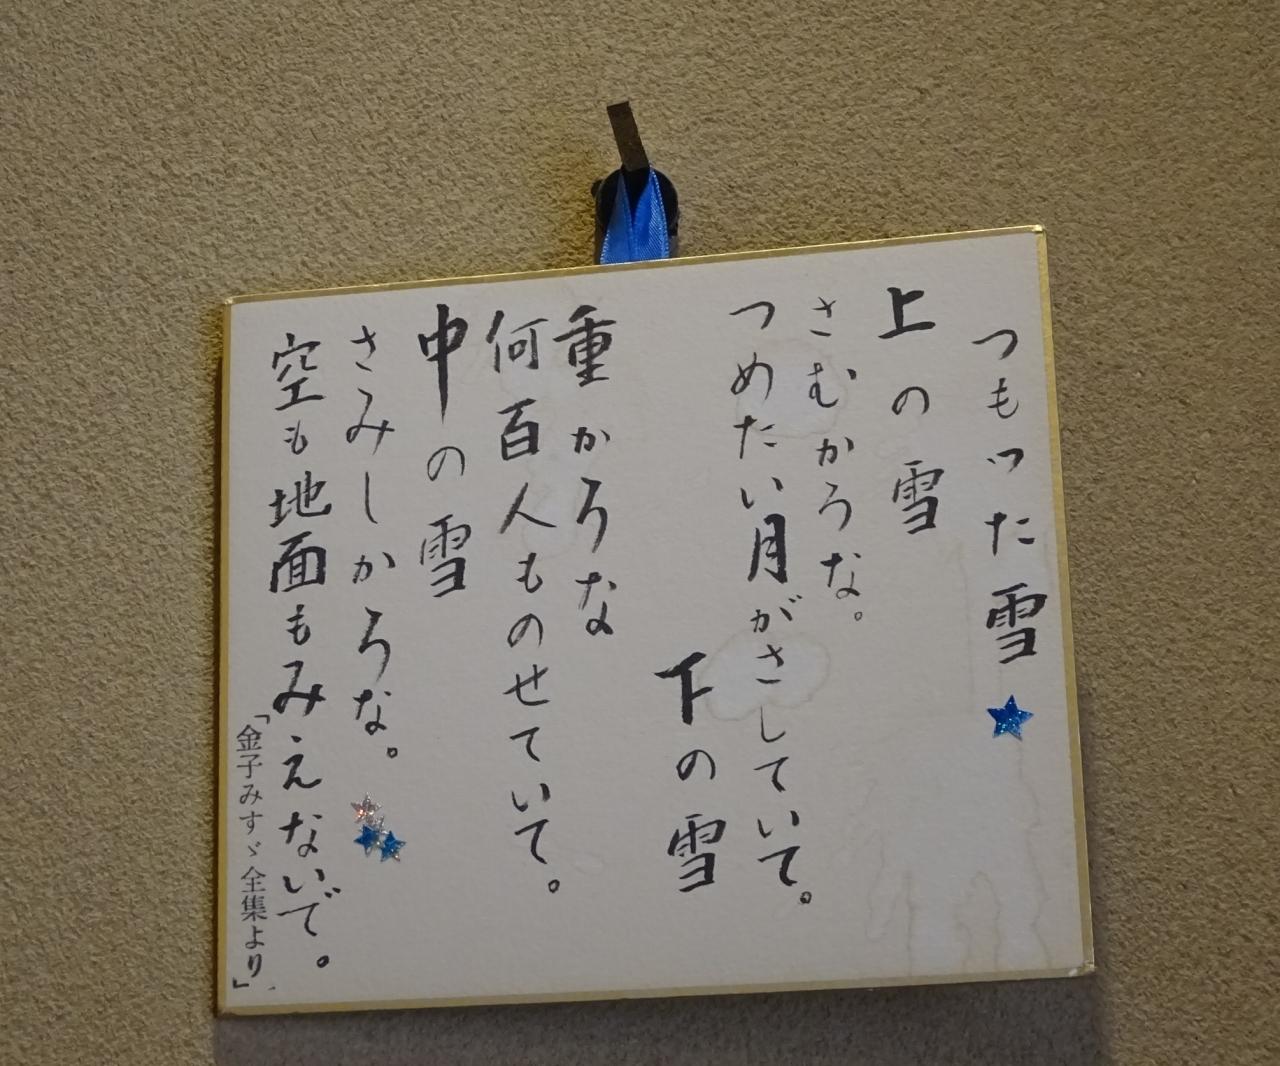 つもった雪
上の雪
さむかろな。
つめたい月がさしていて。
下の雪
重かろな
何百人ものせていて。
中の雪
さみしかろな。
空も地面もみえないで。
「金子みすゞ全集より」